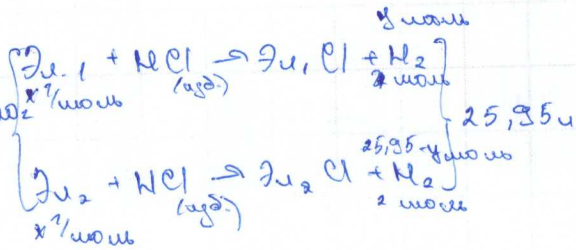 y моль
Эл.1 + HCl → Эл1 Cl + H2
x г/моль (изб.) 2 моль
25,95 л
25,95-y моль
Эл2 + HCl → Эл2 Cl + H2
x г/моль (изб.) 2 моль